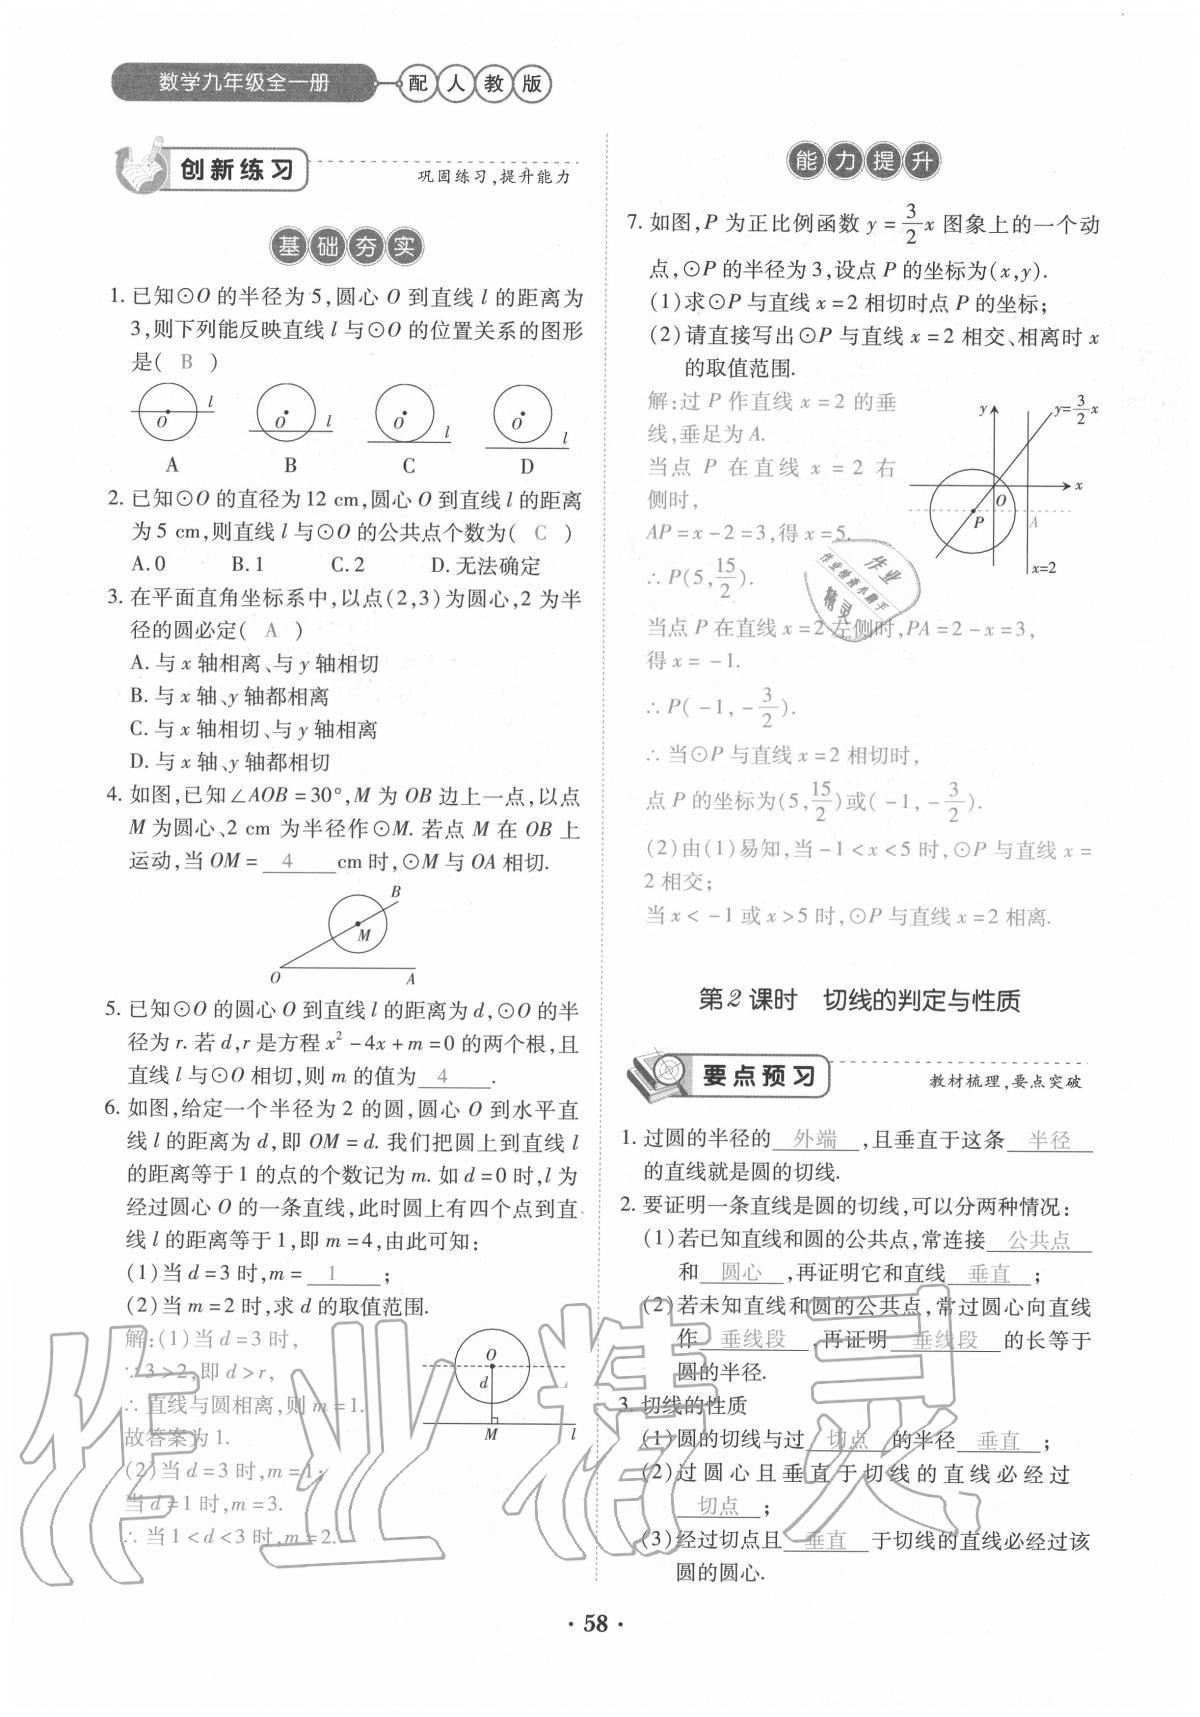 数学九年级全一册
配人教版
创新练习
巩固练习,提升能力
基础夯实
1. 已知⊙O 的半径为 5,圆心 O 到直线 l 的距离为
3,则下列能反映直线 l 与⊙O 的位置关系的图形
是( B )
O l O l O l O l
A B C D
2. 已知⊙O 的直径为 12 cm,圆心 O 到直线 l 的距离
为 5 cm,则直线 l 与⊙O 的公共点个数为( C )
A. 0 B. 1 C. 2 D. 无法确定
3. 在平面直角坐标系中,以点(2,3)为圆心,2 为半
径的圆必定( A )
A. 与 x 轴相离、与 y 轴相切
B. 与 x 轴、y 轴都相离
C. 与 x 轴相切、与 y 轴相离
D. 与 x 轴、y 轴都相切
4. 如图,已知∠AOB = 30°,M 为 OB 边上一点,以点
M 为圆心、2 cm 为半径作⊙M. 若点 M 在 OB 上
运动,当 OM = 4 cm 时,⊙M 与 OA 相切.
B
M
O A
5. 已知⊙O 的圆心 O 到直线 l 的距离为 d,⊙O 的半
径为 r. 若 d,r 是方程 x² - 4x + m = 0 的两个根,且
直线 l 与⊙O 相切,则 m 的值为 4 .
6. 如图,给定一个半径为 2 的圆,圆心 O 到水平直
线 l 的距离为 d,即 OM = d. 我们把圆上到直线 l
的距离等于 1 的点的个数记为 m. 如 d = 0 时,l 为
经过圆心 O 的一条直线,此时圆上有四个点到直
线 l 的距离等于 1,即 m = 4,由此可知:
(1)当 d = 3 时,m = 1 ;
(2)当 m = 2 时,求 d 的取值范围.
解:(1)当 d = 3 时,
∵3 > 2,即 d > r,
∴直线与圆相离,则 m = 1.
故答案为 1.
(2)当 d = 3 时,m = 1;
当 d = 1 时,m = 3.
∴当 1 < d < 3 时,m = 2.
O
d
M l
能力提升
7. 如图,P 为正比例函数 y = 3/2 x 图象上的一个动
点,⊙P 的半径为 3,设点 P 的坐标为(x,y).
(1)求⊙P 与直线 x = 2 相切时点 P 的坐标;
(2)请直接写出⊙P 与直线 x = 2 相交、相离时 x
的取值范围.
解:过 P 作直线 x = 2 的垂
线,垂足为 A.
当点 P 在直线 x = 2 右
侧时,
AP = x - 2 = 3,得 x = 5.
∴P(5,15/2).
y y=3/2 x
x
O
P A
x=2
当点 P 在直线 x = 2 左侧时,PA = 2 - x = 3,
得 x = -1.
∴P( -1, -3/2).
∴当⊙P 与直线 x = 2 相切时,
点 P 的坐标为(5,15/2)或( -1, -3/2).
(2)由(1)易知,当 -1 < x < 5 时,⊙P 与直线 x =
2 相交;
当 x < -1 或 x > 5 时,⊙P 与直线 x = 2 相离.
第 2 课时 切线的判定与性质
要点预习
教材梳理,要点突破
1. 过圆的半径的 外端 ,且垂直于这条 半径
的直线就是圆的切线.
2. 要证明一条直线是圆的切线,可以分两种情况:
(1)若已知直线和圆的公共点,常连接 公共点
和 圆心 ,再证明它和直线 垂直 ;
(2)若未知直线和圆的公共点,常过圆心向直线
作 垂线段 ,再证明 垂线段 的长等于
圆的半径.
3. 切线的性质
(1)圆的切线与过 切点 的半径 垂直 ;
(2)过圆心且垂直于切线的直线必经过
切点 ;
(3)经过切点且 垂直 于切线的直线必经过该
圆的圆心.
作业精灵
· 58 ·